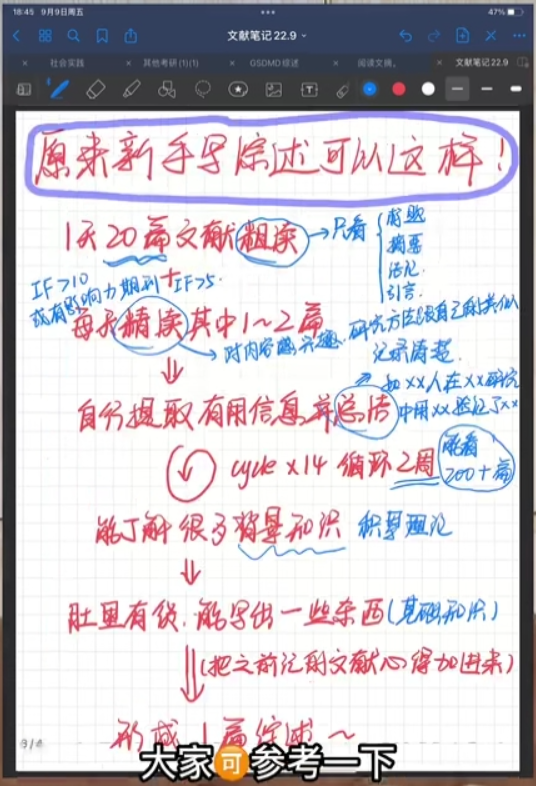 18:45 9月9日周五
47%
文献笔记22.9
社会实践
其他考研(1)(1)
GSDMD综述
阅读文摘。
文献笔记22.9
原来新手写综述可以这样!
1天20篇文献粗读
→只看
摘要
结论.
引言.
IF>10
或有影响力期刊 + IF>5.
每天精读其中1~2篇
→对内容感兴趣.
研究方法跟自己的类似
⇓
记录清楚.
自个提取有用信息并总结
如xx人在xx研究
中用xx验证了xx
↓ cycle x14 循环2周
能看
200+篇
能了解很多背景知识 积累理论
⇓
肚里有货,能写出一些东西(基础知识)
⇓ (把之前记的文献心得加进来)
形成1篇综述~
大家可参考一下